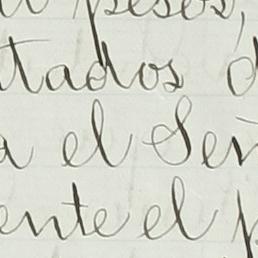 pesos,
tados
el Señ
ente el p